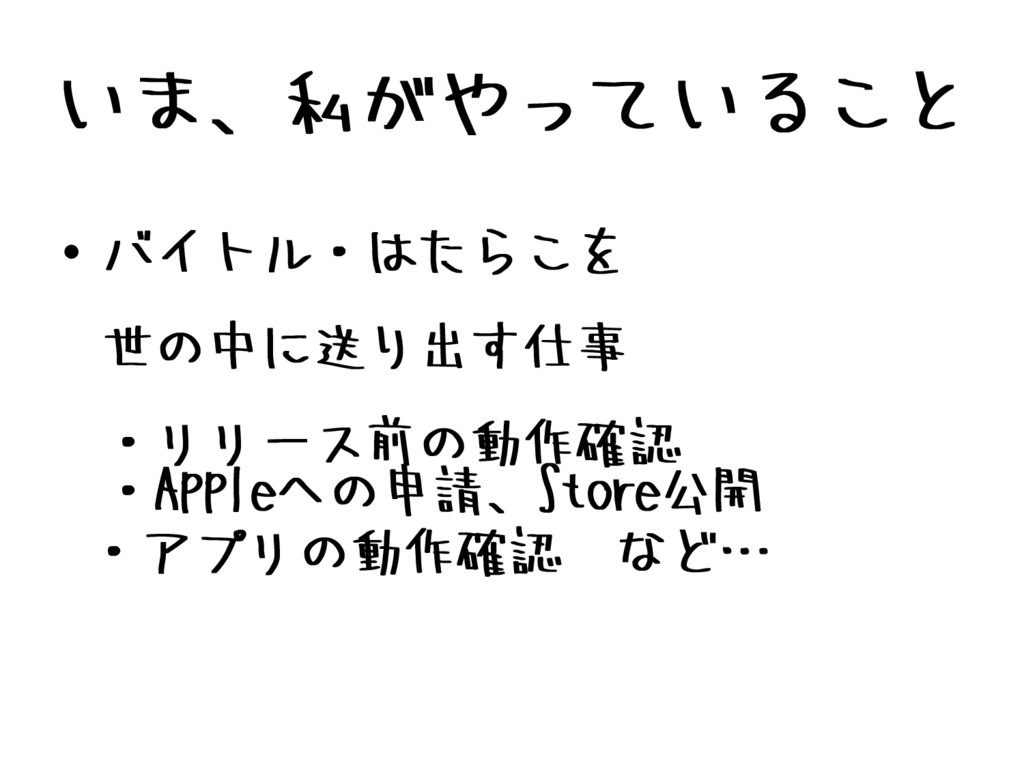 いま、私がやっていること
・バイトル・はたらこを
世の中に送り出す仕事
・リリース前の動作確認
・Appleへの申請、Store公開
・アプリの動作確認　など…